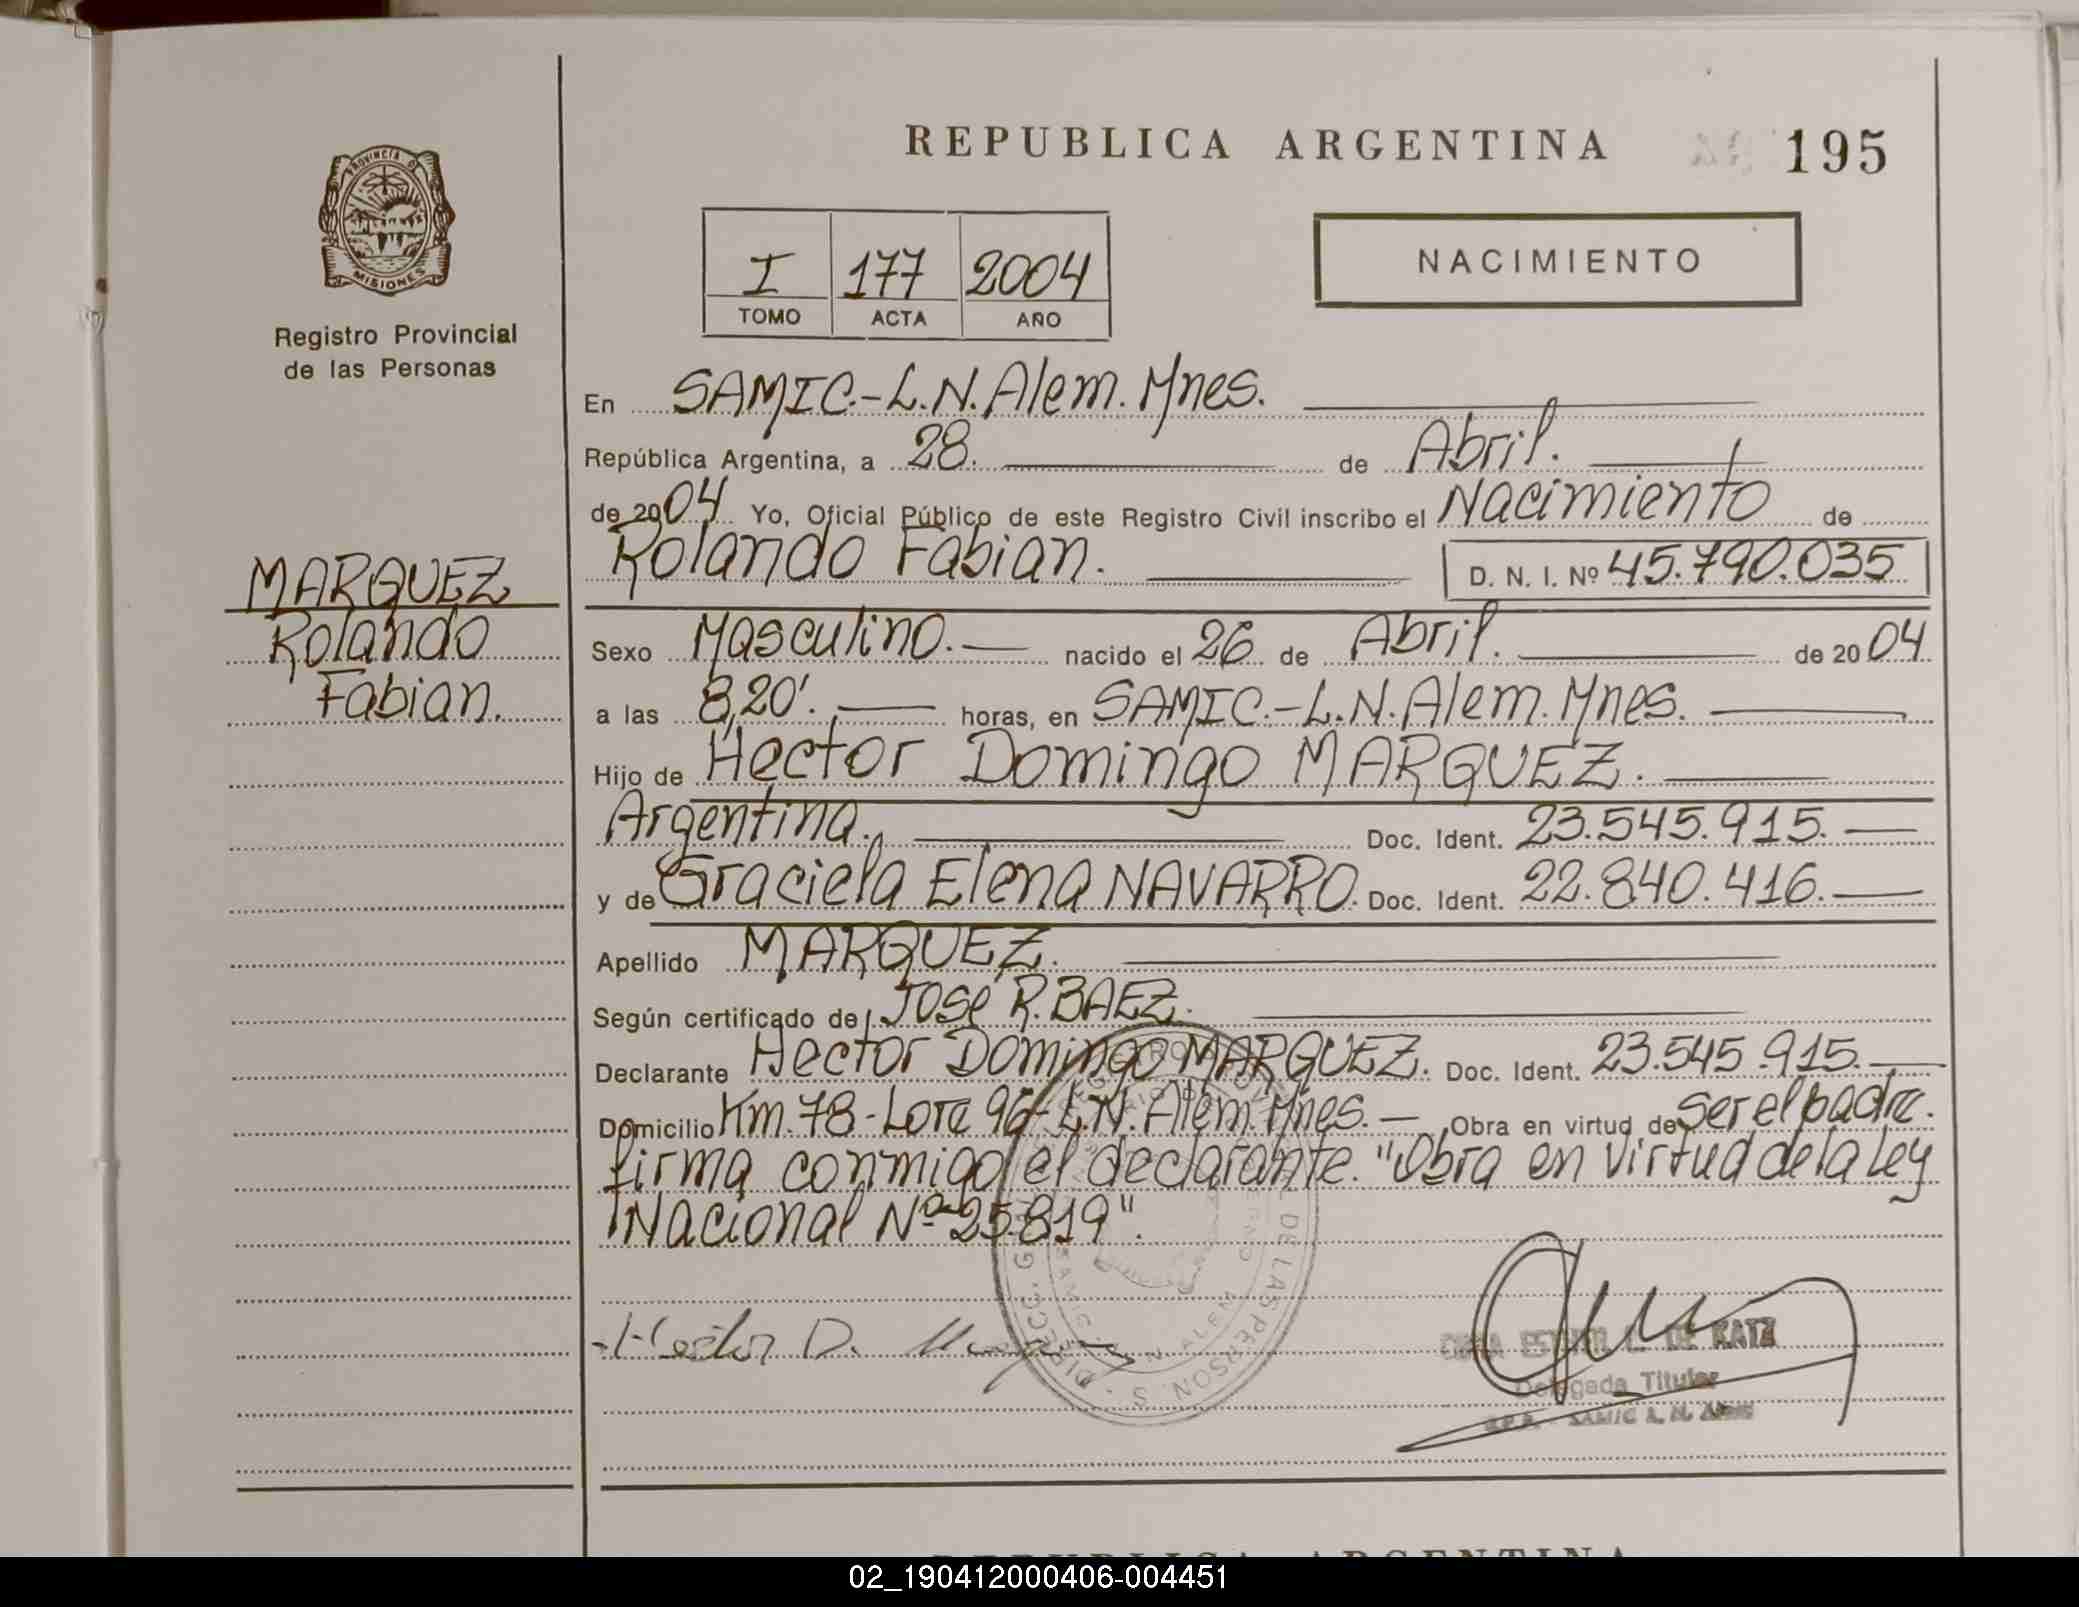 REPUBLICA ARGENTINA 195
PROVINCIA DE
MISIONES
Registro Provincial
de las Personas
NACIMIENTO
I 177 2004
TOMO ACTA AÑO
En SAMIC.-L.N.Alem.Mnes.
República Argentina, a 28. de Abril.
de 2004 Yo, Oficial Público de este Registro Civil inscribo el Nacimiento de
Rolando Fabian. D. N. I. Nº 45.790.035
MARQUEZ
Rolando
Fabian.
Sexo Masculino.- nacido el 26 de Abril. de 2004
a las 8,20'. horas, en SAMIC.-L.N.Alem.Mnes.
Hijo de Hector Domingo MARQUEZ.
Argentina. Doc. Ident. 23.545.915.-
y de Graciela Elena NAVARRO. Doc. Ident. 22.840.416.-
Apellido MARQUEZ.
Según certificado de José R.BAEZ.
Declarante Hector Domingo MARQUEZ. Doc. Ident. 23.545.915.-
Domicilio Km.78-Lote 96-L.N.Alem.Mnes.- Obra en virtud de ser el padre.
firma conmigo el declarante."Obra en virtud de la Ley
Nacional Nº 25.819".
Hector D.
DE KATZ
Delegada Titular
SAMIC L. N. ALEM
REPUBLICA ARGENTINA
02_190412000406-004451